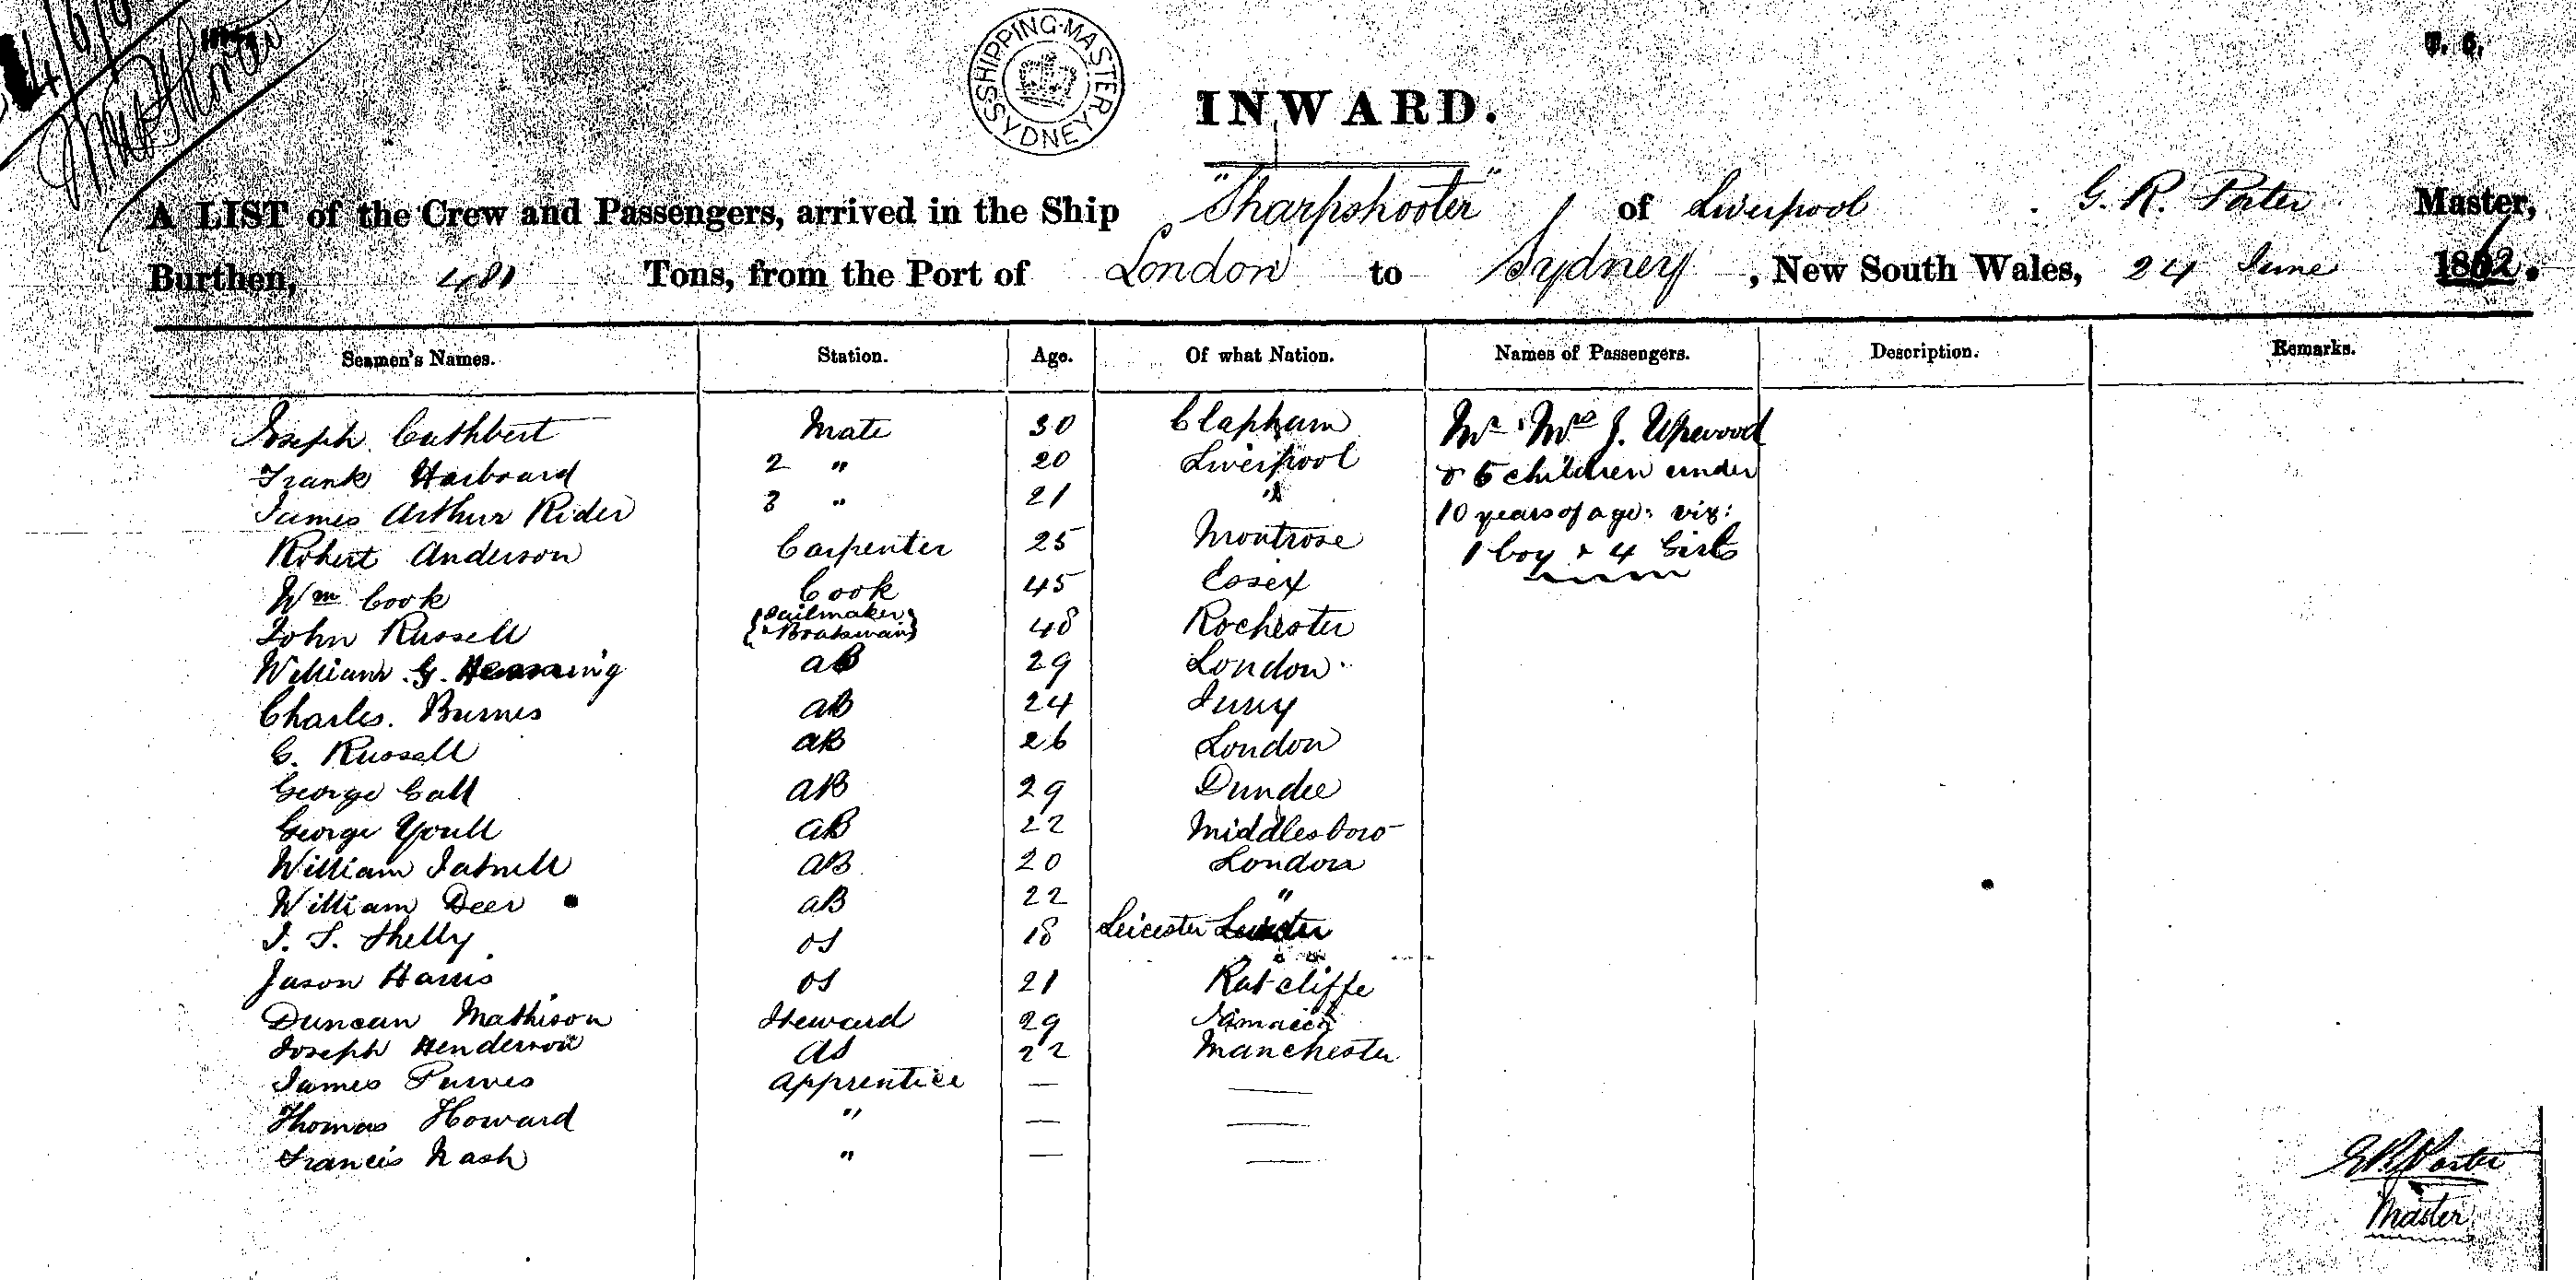 SHIPPING MASTER SYDNEY
INWARD.
A LIST of the Crew and Passengers, arrived in the Ship "Sharpshooter" of Liverpool G. R. Porter Master,
Burthen, 481 Tons, from the Port of London to Sydney, New South Wales, 24 June 1862.
Seamen's Names. Station. Age. Of what Nation. Names of Passengers. Description. Remarks.
Joseph Cuthbert Mate 30 Clapham Mr Mrs J. Upwood
Frank Harboard 2 " 20 Liverpool & 5 children under
James Arthur Rider 3 " 21 " 10 years of age. viz:
Robert Anderson Carpenter 25 Montrose 1 boy & 4 Girls
Wm Cook Cook 45 Essex
John Russell {Sailmaker & Boatswain} 48 Rochester
William G. Henning aB 29 London
Charles. Burnes aB 24 
G. Russell aB 26 London
George Call aB 29 Dundee
George Youll aB 22 Middlesboro
William Tatnell aB 20 London
William Deer aB 22 "
J. S. Shelly OS 18 Leicester
Jason Harris OS 21 Ratcliffe
Duncan Mathison Steward 29 Jamaica
Joseph Henderson 22 Manchester
James Purves apprentice —— ——
Thomas Howard " —— ——
Francis Nash " —— ——
G R Porter
Master